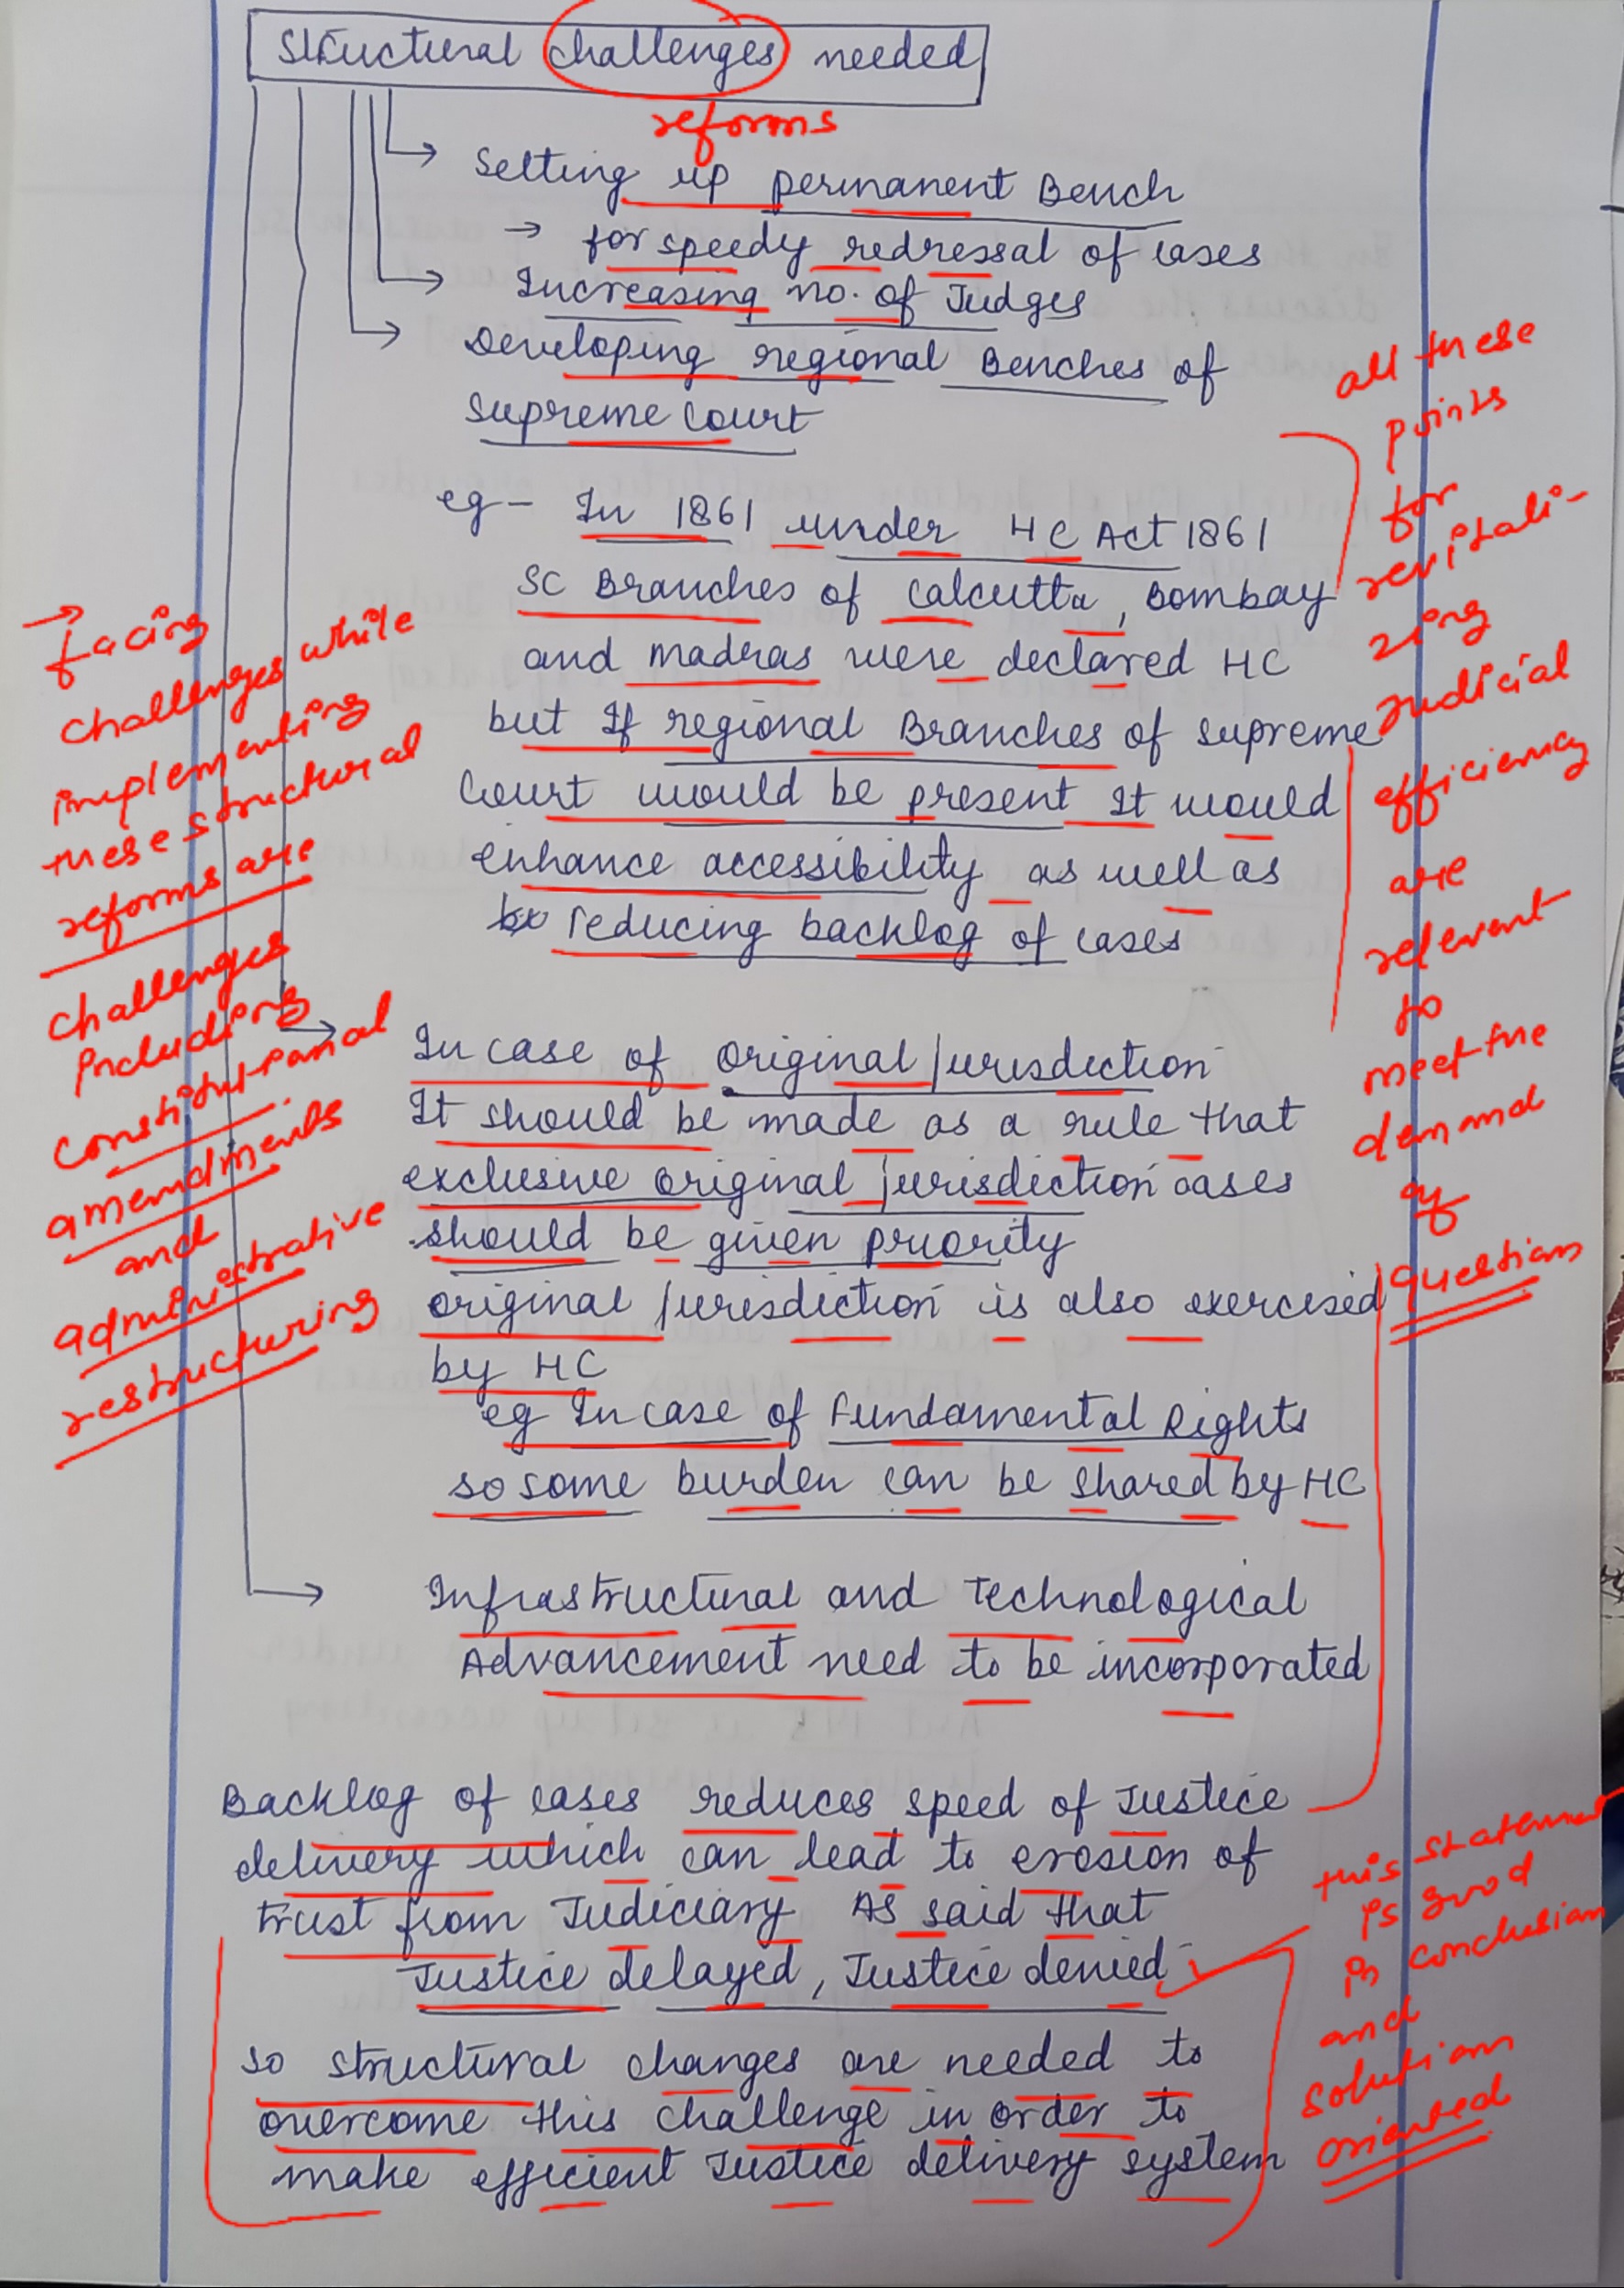 Structural challenges needed
reforms
Setting up permanent Bench
→ for speedy redressal of cases
Increasing no. of Judges
Developing regional Benches of
Supreme Court
eg - In 1861 under HC Act 1861
SC Branches of Calcutta, Bombay
and madras were declared HC
but If regional Branches of supreme
Court would be present It would
enhance accessibility as well as
reducing backlog of cases
In case of original Jurisdiction
It should be made as a rule that
exclusive original jurisdiction cases
should be given priority
original Jurisdiction is also exercised
by HC
eg In case of Fundamental Rights
so some burden can be shared by HC
Infrastructural and Technological
Advancement need to be incorporated
Backlog of cases reduces speed of Justice
delivery which can lead to erosion of
trust from Judiciary As said that
Justice delayed, Justice denied
so structural changes are needed to
overcome this challenge in order to
make efficient Justice delivery system
→ facing
challenges while
implementing
these structural
reforms are
challenges
including
constitutional
amendments
and
administrative
restructuring
all these
points
for
revitali-
zing
Judicial
efficiency
are
relevent
to
meet the
demand
of
question
this statement
is good
in conclusion
and
solution
oriented